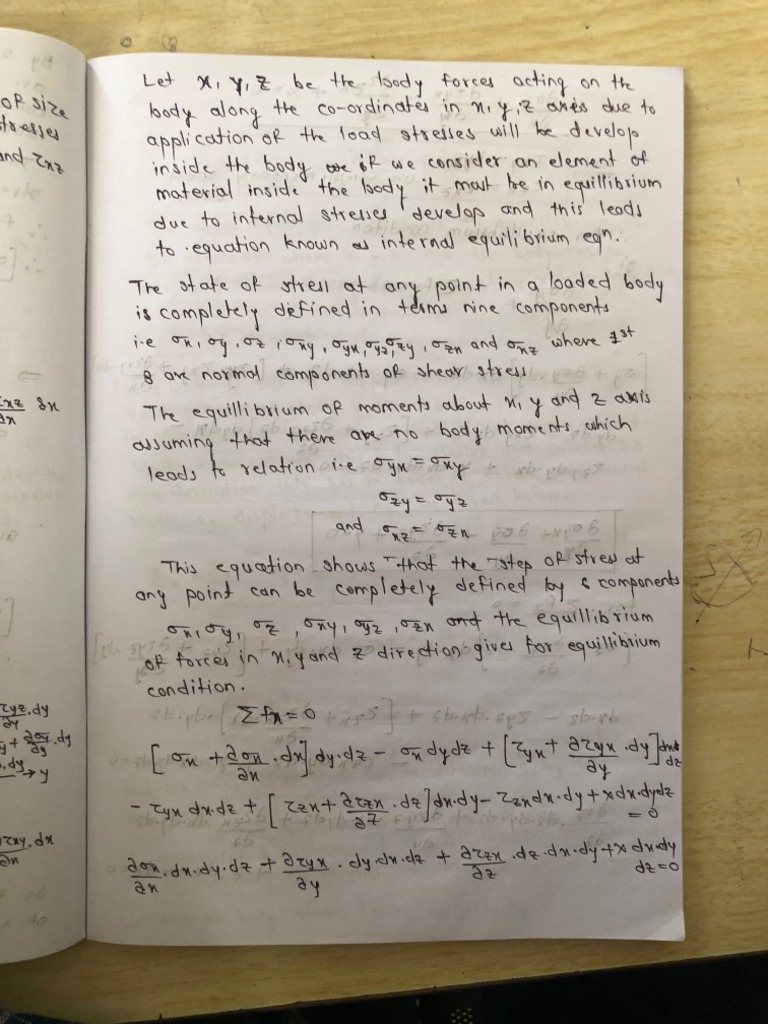 of size
stresses
and τxz
τxz δx
∂x
τyz.dy
∂y
y + ∂σy .dy
∂y
.dy
→ y
τxy.dx
∂x
Let X, Y, Z be the body forces acting on the
body along the co-ordinates in x, y, z axes due to
application of the load stresses will be develop
inside the body if we consider an element of
material inside the body it must be in equillibrium
due to internal stresses develop and this leads
to equation known as internal equilibrium eqn.
The state of stress at any point in a loaded body
is completely defined in terms nine components
i.e σx, σy, σz, σxy, σyx, σyz, σzy, σzx and σxz where 1st
3 are normal components of shear stress
The equillibrium of moments about x, y and z axis
assuming that there are no body moments which
leads to relation i.e σyx = σxy
σzy = σyz
and σxz = σzx
This equation shows that the step of stress at
any point can be completely defined by 6 components
σx, σy, σz, σxy, σyz, σzx and the equillibrium
of forces in x, y and z direction gives for equillibrium
condition.
Σfx = 0
[σx + ∂σx/∂x .dx] dy.dz - σx dydz + [τyx + ∂τyx/∂y .dy] dx.dz
- τyx dx.dz + [τzx + ∂τzx/∂z .dz] dx.dy - τzx dx.dy + x dx.dydz
= 0
∂σx/∂x .dx.dy.dz + ∂τyx/∂y . dy.dx.dz + ∂τzx/∂z .dz.dx.dy + x dx dy
dz = 0